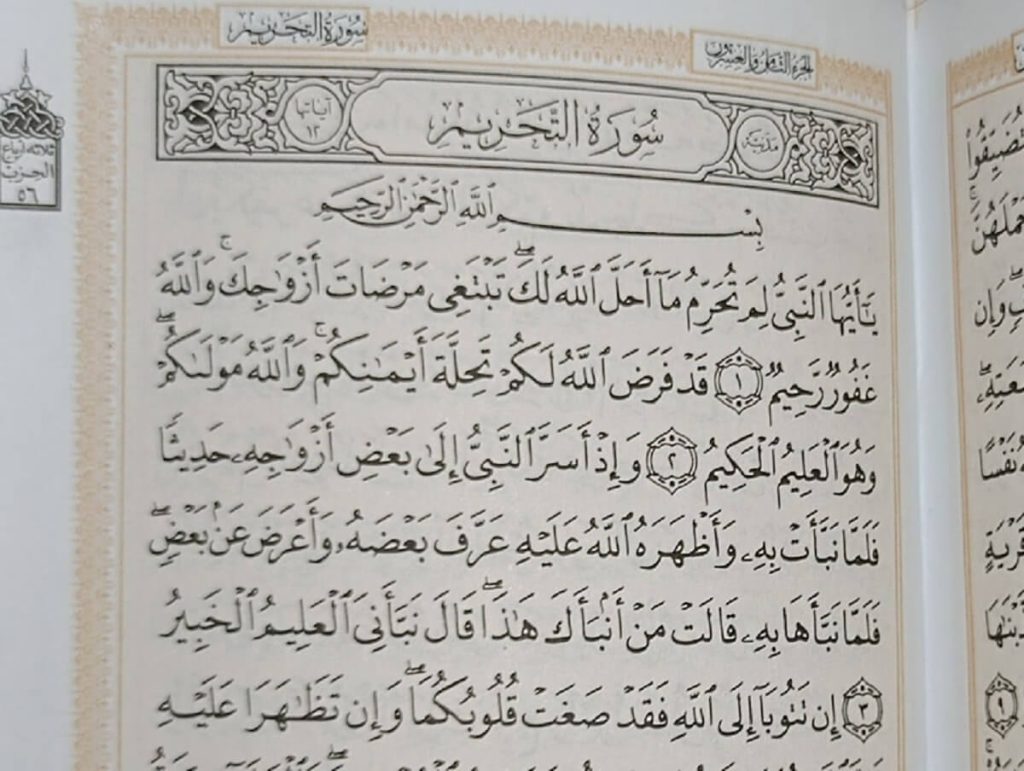 سُورَةُ التَّحْرِيمِ
الجزء الثامن والعشرون
ثلاثة أرباع
الحزب
٥٦
آياتها
١٢
سُورَةُ التَّحْرِيمِ
مَدَنِيَّة
بِسْمِ ٱللَّهِ ٱلرَّحْمَٰنِ ٱلرَّحِيمِ
يَٰٓأَيُّهَا ٱلنَّبِيُّ لِمَ تُحَرِّمُ مَآ أَحَلَّ ٱللَّهُ لَكَۖ تَبْتَغِي مَرْضَاتَ أَزْوَٰجِكَۚ وَٱللَّهُ
غَفُورٌ رَّحِيمٌ ١ قَدْ فَرَضَ ٱللَّهُ لَكُمْ تَحِلَّةَ أَيْمَٰنِكُمْۚ وَٱللَّهُ مَوْلَىٰكُمْۖ
وَهُوَ ٱلْعَلِيمُ ٱلْحَكِيمُ ٢ وَإِذْ أَسَرَّ ٱلنَّبِيُّ إِلَىٰ بَعْضِ أَزْوَٰجِهِۦ حَدِيثًا
فَلَمَّا نَبَّأَتْ بِهِۦ وَأَظْهَرَهُ ٱللَّهُ عَلَيْهِ عَرَّفَ بَعْضَهُۥ وَأَعْرَضَ عَنۢ بَعْضٍۖ
فَلَمَّا نَبَّأَهَا بِهِۦ قَالَتْ مَنْ أَنۢبَأَكَ هَٰذَاۖ قَالَ نَبَّأَنِيَ ٱلْعَلِيمُ ٱلْخَبِيرُ
٣ إِن تَتُوبَآ إِلَى ٱللَّهِ فَقَدْ صَغَتْ قُلُوبُكُمَاۖ وَإِن تَظَٰهَرَا عَلَيْهِ
وَإِن
نَفْسًا
قَرْيَةٍ
٩